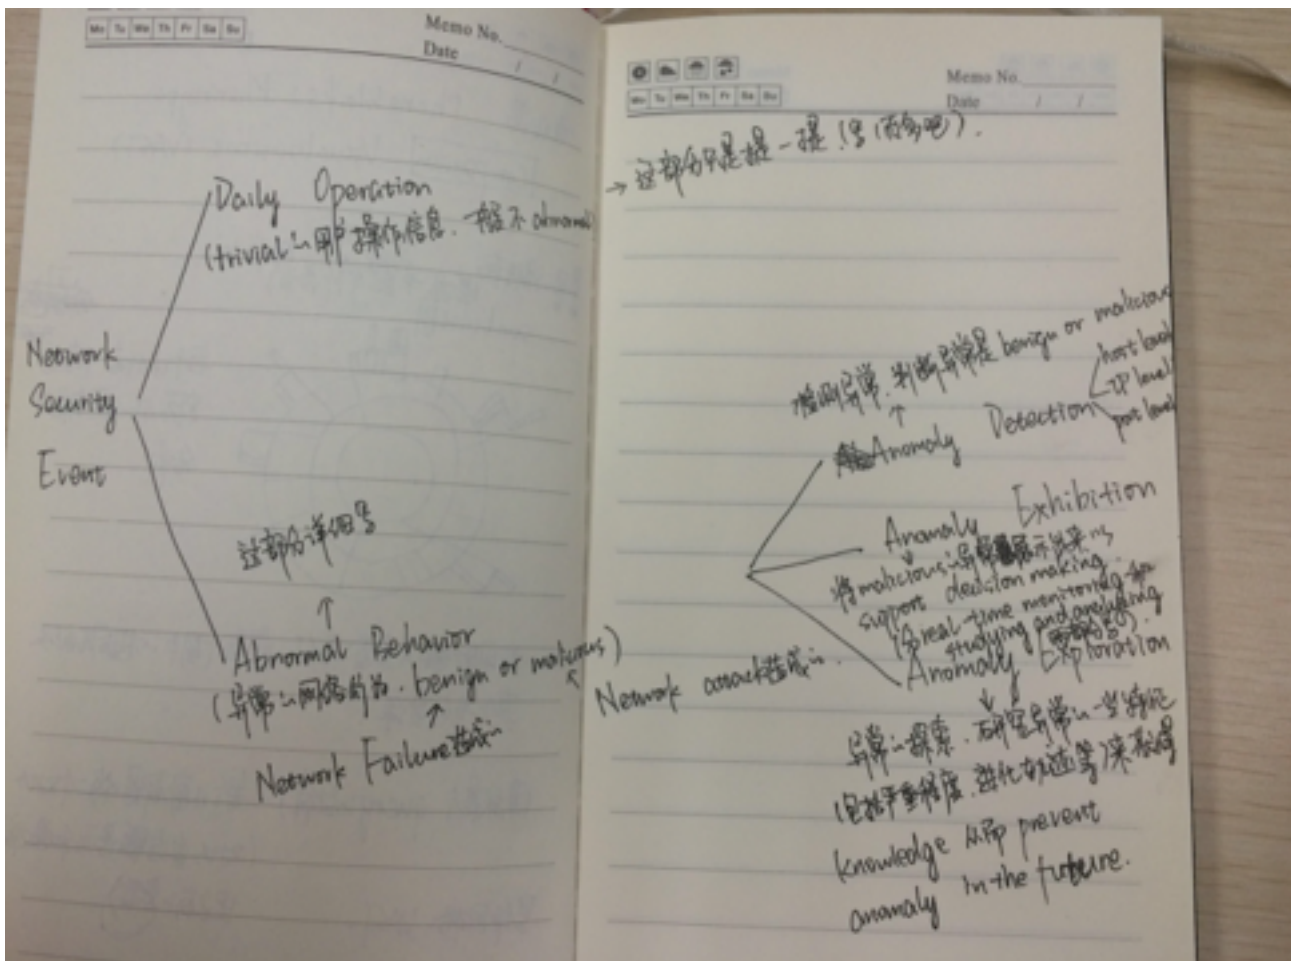 Mo Tu We Th Fr Sa Su
Memo No.
Date / /
Daily Operation
(trivial的用户操作信息. 一般不abnormal)
Network
Security
Event
这部分详细写
↑
Abnormal Behavior
(异常的网络行为. benign or malicious)
↑
Network Failure造成的
Mo Tu We Th Fr Sa Su
Memo No.
Date / /
→ 这部分只是提一提
检测异常. 判断异常是 benign or malicious
↑
Anomaly Detection
host level
IP level
port level
Anomaly Exhibition
将malicious的异常展示出来
support decision making.
real-time monitoring
studying and analyzing
Network attack造成的.
Anomaly Exploration
异常的探索. 研究异常的一些特征
(包括严重程度. 进化轨迹等)来
knowledge 从而 prevent
anomaly in the future.